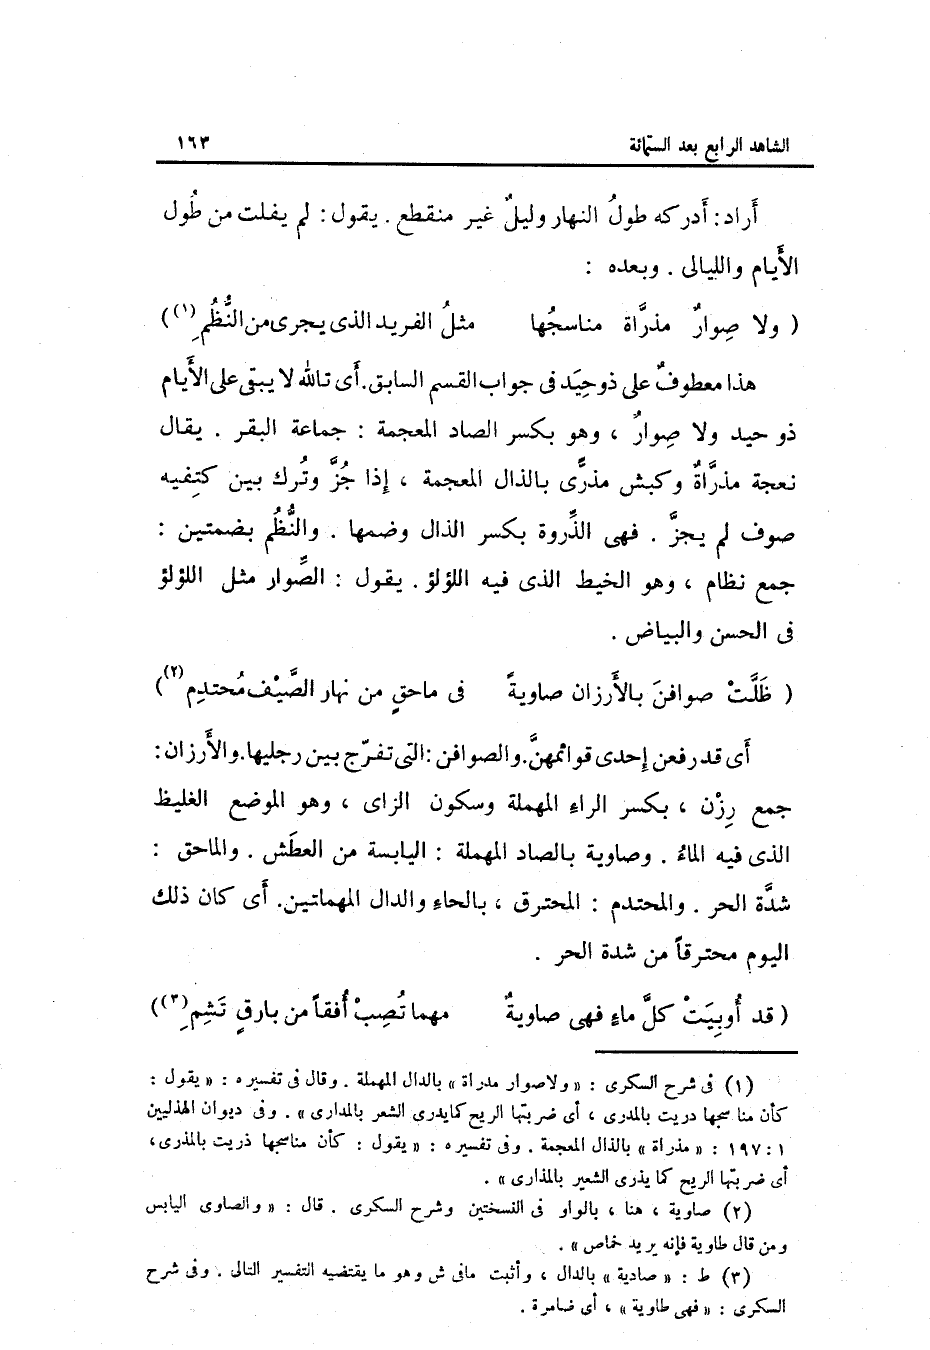 الشاهد الرابع بعد الستمائة ١٦٣
أَراد: أَدركه طولُ النهار وليلٌ غير منقطع . يقول : لم يفلت من طُول
الأَيام والليالى . وبعده :
( ولا صِوارٌ مذرَّاة مناسجُها مثلُ الفريد الذى يجرى من النُّظُمِ (١))
هذا معطوفٌ على ذو حِيَد فى جواب القسم السابق. أَى تالله لا يبقى على الأَيام
ذو حيد ولا صِوارٌ ، وهو بكسر الصاد المعجمة : جماعة البقر . يقال
نعجة مذرَّاةٌ وكبش مذرًّى بالذال المعجمة ، إِذا جُزَّ وتُرك بين كتِفيه
صوف لم يجزَّ . فهى الذِّروة بكسر الذال وضمها . والنُّظُم بضمتين :
جمع نظام ، وهو الخيط الذى فيه اللؤلؤ . يقول : الصِّوار مثل اللؤلؤ
فى الحسن والبياض .
( ظَلَّتْ صوافنَ بالأَرزان صاويةً فى ماحقٍ من نهار الصَّيْف مُحتدِم (٢))
أَى قد رفعن إِحدى قوائمهنَّ. والصوافن : التى تفرّج بين رجليها. والأَرزان :
جمع رِزْن ، بكسر الراء المهملة وسكون الزاى ، وهو الموضع الغليظ
الذى فيه الماءُ . وصاوية بالصاد المهملة : اليابسة من العطَش . والماحق :
شدَّة الحر . والمحتدم : المحترق ، بالحاء والدال المهملتين. أَى كان ذلك
اليوم محترقاً من شدة الحر .
( قد أُوبِيَتْ كلَّ ماءٍ فهى صاويةٌ مهما تُصِبْ أُفقاً من بارقٍ تَشِمِ (٣))
(١) فى شرح السكرى : « ولا صوار مدراة » بالدال المهملة . وقال فى تفسيره : « يقول :
كأن مناسجها دريت بالمدرى ، أى ضربتها الريح كما يدرى الشعر بالمدارى » . وفى ديوان الهذليين
١ : ١٩٧ : « مذراة » بالذال المعجمة . وفى تفسيره : « يقول : كأن مناسجها ذريت بالمذرى ،
أى ضربتها الريح كما يذرى الشعير بالمذارى » .
(٢) صاوية ، هنا ، بالواو فى النسختين وشرح السكرى . قال : « والصاوى اليابس
ومن قال طاوية فإنه يريد خماص » .
(٣) ط : « صادية » بالدال ، وأثبت مافى ش وهو ما يقتضيه التفسير التالى . وفى شرح
السكرى : « فهى طاوية » ، أى ضامرة .